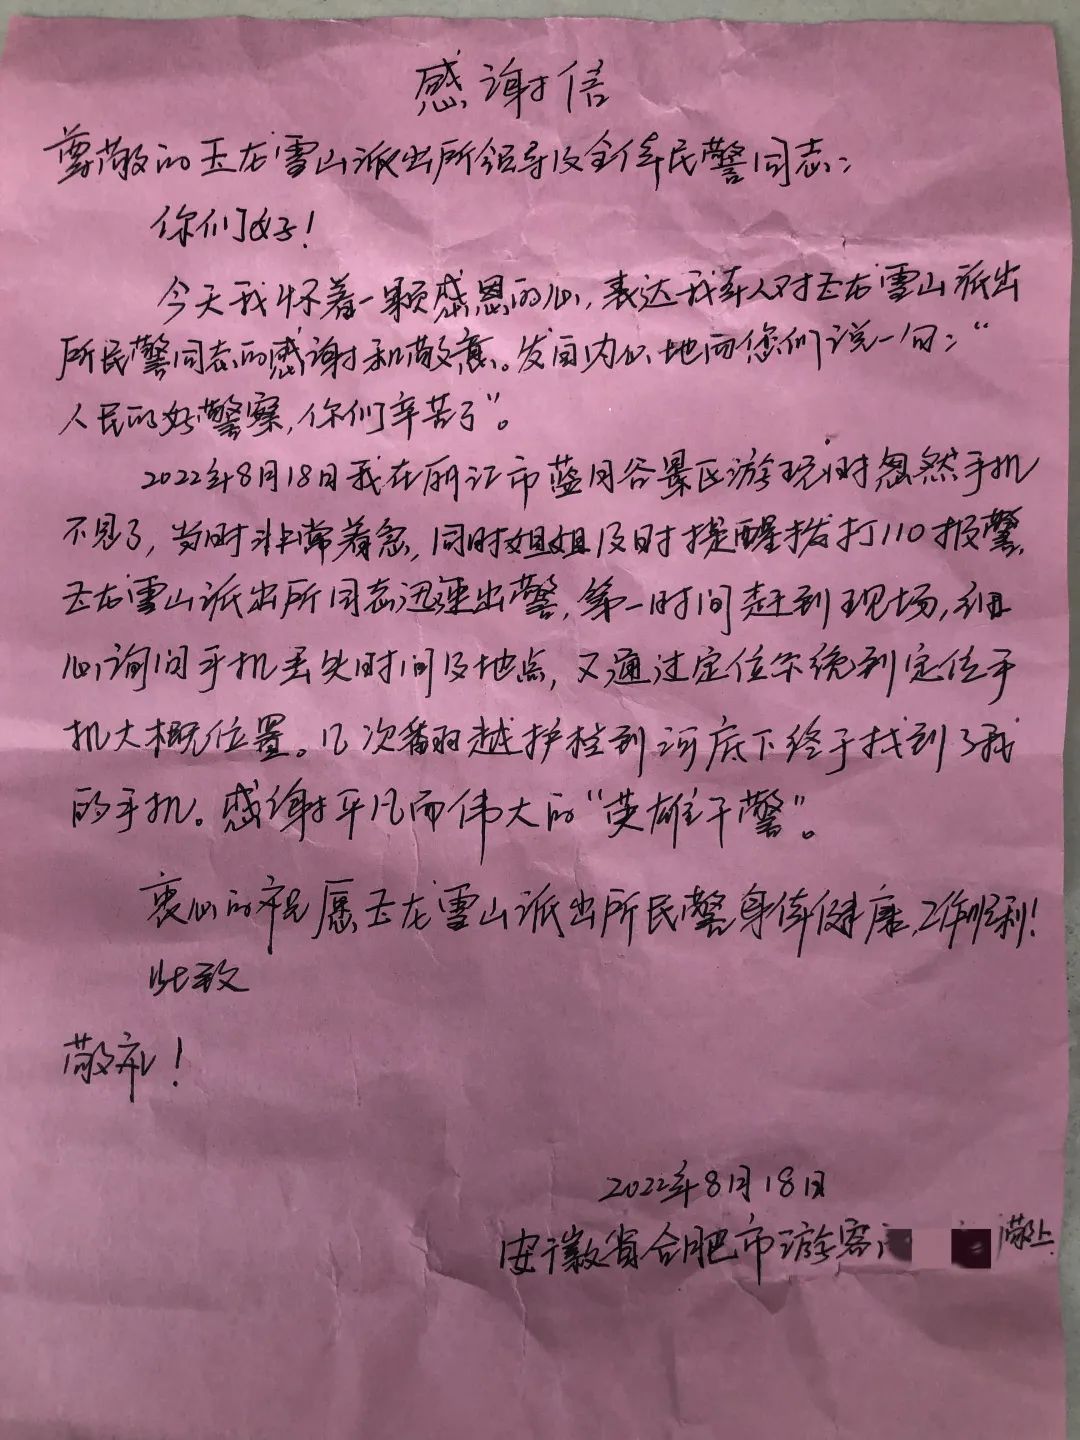 感谢信
尊敬的玉龙雪山派出所领导及全体民警同志：
你们好！
今天我怀着一颗感恩的心，表达我本人对玉龙雪山派出
所民警同志的感谢和敬意。发自内心地向您们说一句：“
人民的好警察，你们辛苦了”。
2022年8月18日我在丽江市蓝月谷景区游玩时忽然手机
不见了，当时非常着急，同时姐姐及时提醒拨打110报警，
玉龙雪山派出所同志迅速出警，第一时间赶到现场，细
心询问手机丢失时间及地点，又通过定位系统到定位手
机大概位置。几次翻越护栏到河底下终于找到了我
的手机。感谢平凡而伟大的“英雄干警”。
衷心的祝愿玉龙雪山派出所民警身体健康，工作顺利！
此致
敬礼！
2022年8月18日
安徽省合肥市游客 敬上